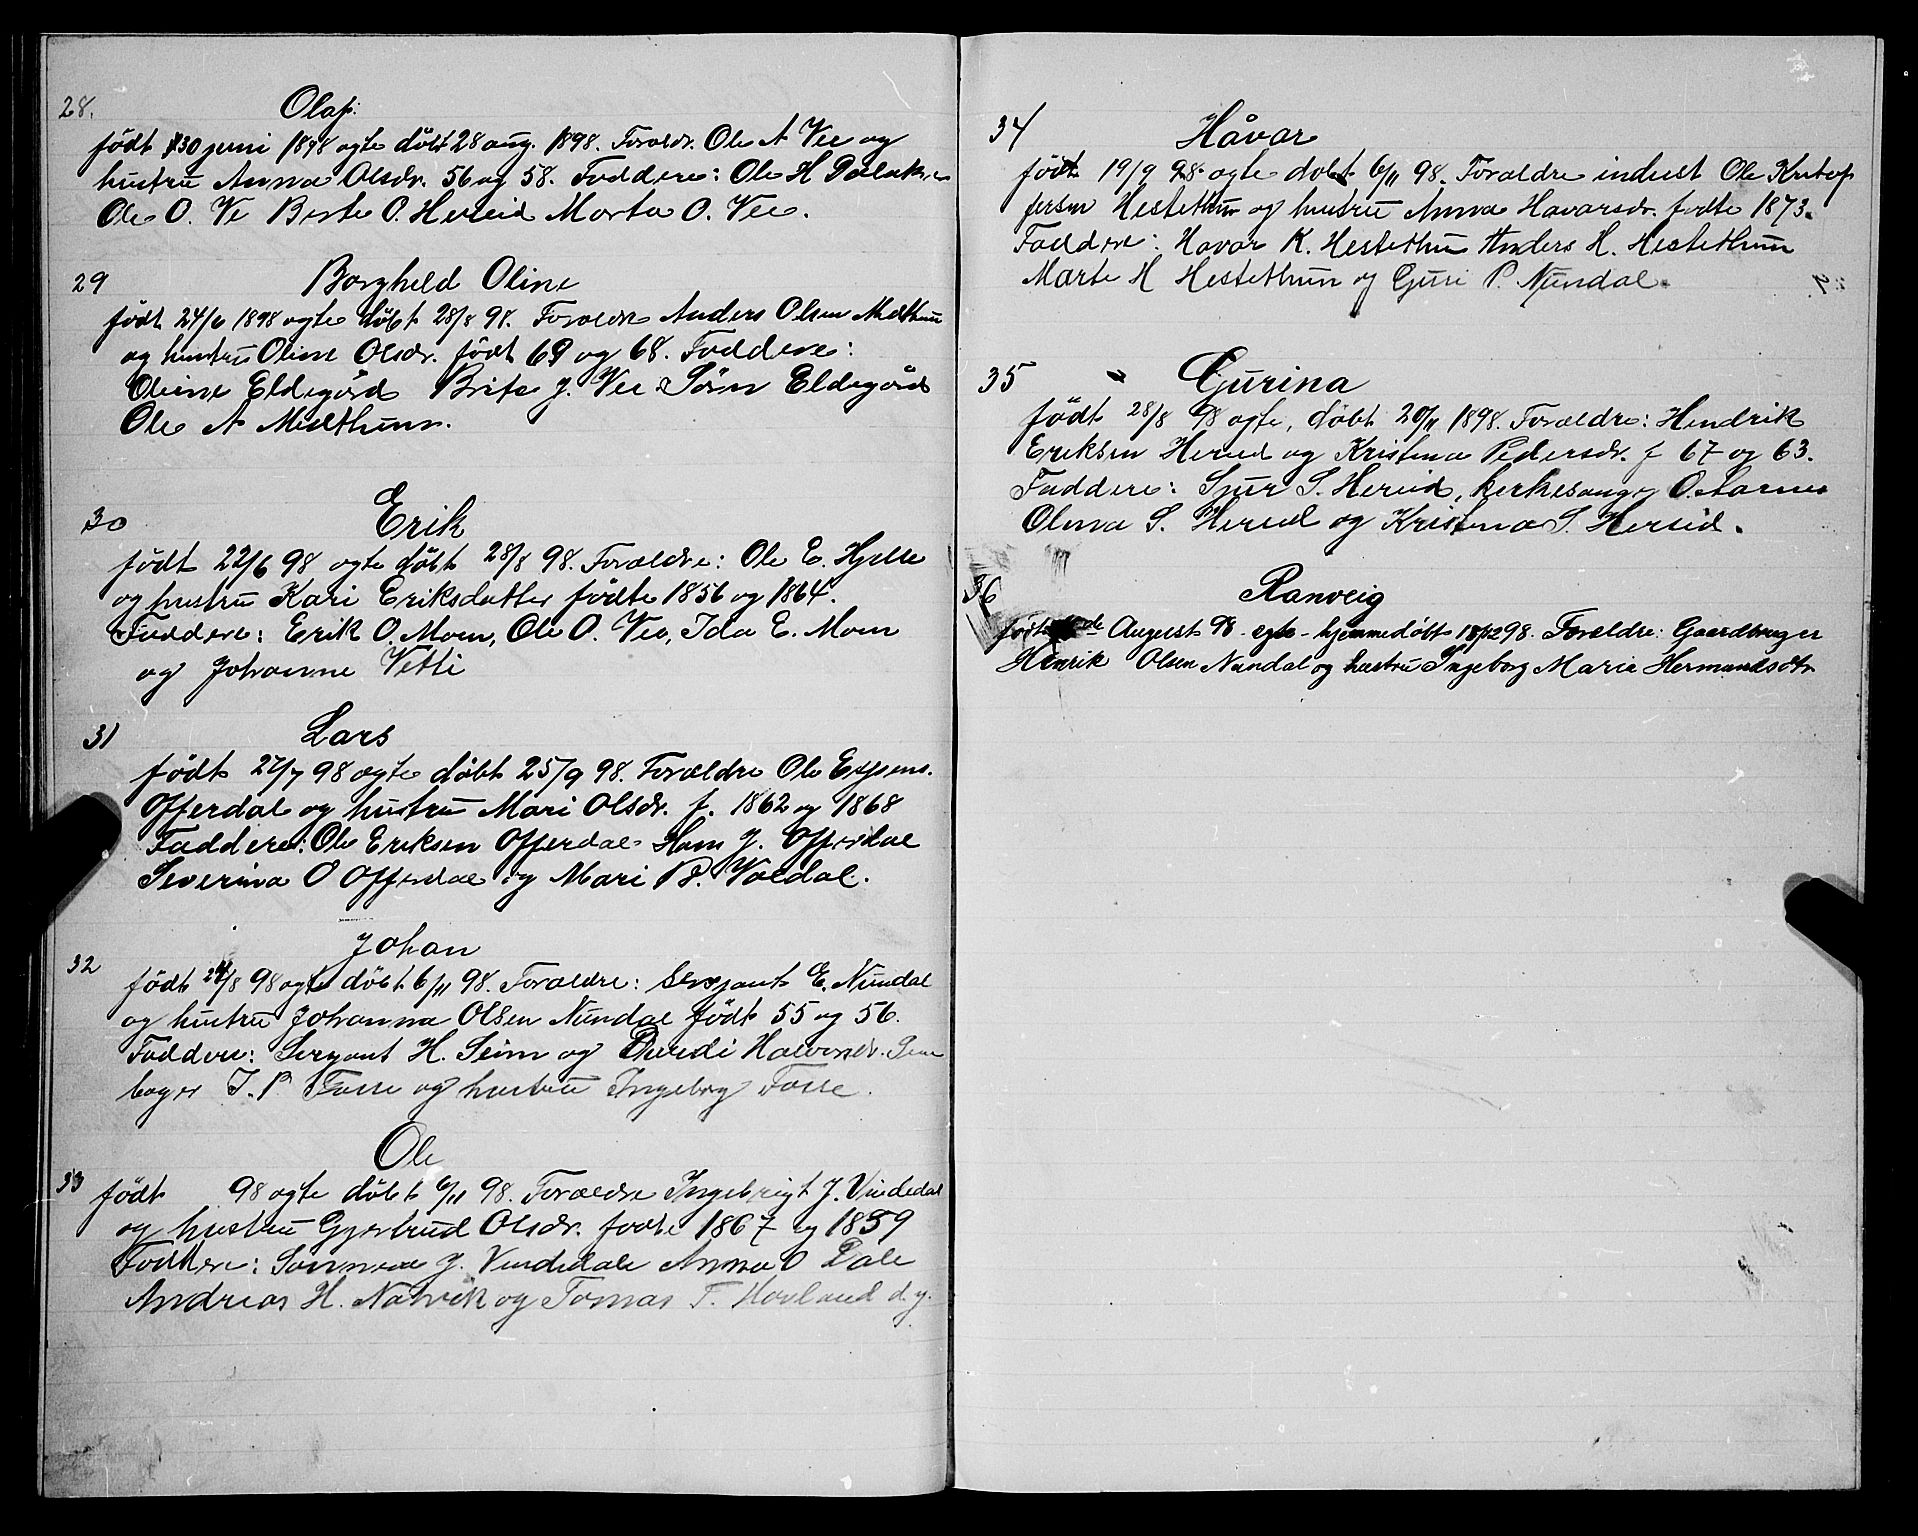 28. Olaf.
født 30 juni 1898 ogte døbt 28 aug. 1898. Forældr. Ole A Vee og
hustru Anna Olsdr. 56 og 58. Faddere: Ole H
Ole O. Ve Berte O. Hereid Marta O. Vee.
29 Borghild Oline
født 24/6 1898 ogte døbt 28/8 98. Forældre Anders Olsen Melthun
og hustru Oline Olsdr. født 69 og 68. Faddere:
Oline Eldegård Brite J. Vee Søren Eldegård
Ole A Melthun.
30 Erik
født 22/6 98 ogte døbt 28/8 98. Forældre: Ole E. Hjelle
og hustru Kari Eriksdatter fødte 1856 og 1864.
Faddere: Erik O. Moen, Ole O. Vee, Ida E. Moen
og Johanne Vetti
31 Lars
født 27/7 98 ogte døbt 25/9 98. Forældre Ole
Offerdal og hustru Mari Olsdr. f. 1862 og 1868
Faddere: Ole Eriksen Offerdal Hans J. Offerdal
Severina O Offerdal og Mari P. Voldal.
32 Johan
født 24/8 98 ogte døbt 6/11 98. Forældre: Serjant E. Nundal
og hustru Johanna Olsen Nundal født 55 og 56.
Faddere: Serjant H. Seim og
bager J. P. Fosse og hustru Ingeborg Fosse.
33 Ole
født 98 ogte døbt 6/11 98. Forældre Ingebrigt J. Vindedal
og hustru Gjertrud Olsdr. fødte 1867 og 1859
Faddere: Sanna J. Vindedal Anna O Dale
Andreas H. Natvik og Tomas T. Hovland d.y.
34 Håvar
født 19/9 98. ogte døbt 6/11 98. Forældre indust Ole Kristof
fersen Hestethun og hustru Anna Havarsdr. fødte 1873.
Faddere: Havar K. Hestethun Anders H. Hestethun
Marte H Hestethun og Guri P. Nundal.
35 Gurina
født 28/8 98 ogte, døbt 20/11 1898. Forældre: Hendrik
Eriksen Hereid og Kristina Pedersdr. f 67 og 63.
Faddere: Sjur S. Hereid, kirkesanger O. Aarnes
Olina S. Hereid og Kristina S. Hereid.
36 Ranveig
født August 98 - egte - hjemmedøbt 18/12 98. Forældre: Gaardbruger
Henrik Olsen Nundal og hustru Ingeborg Maria Hermundsdtr